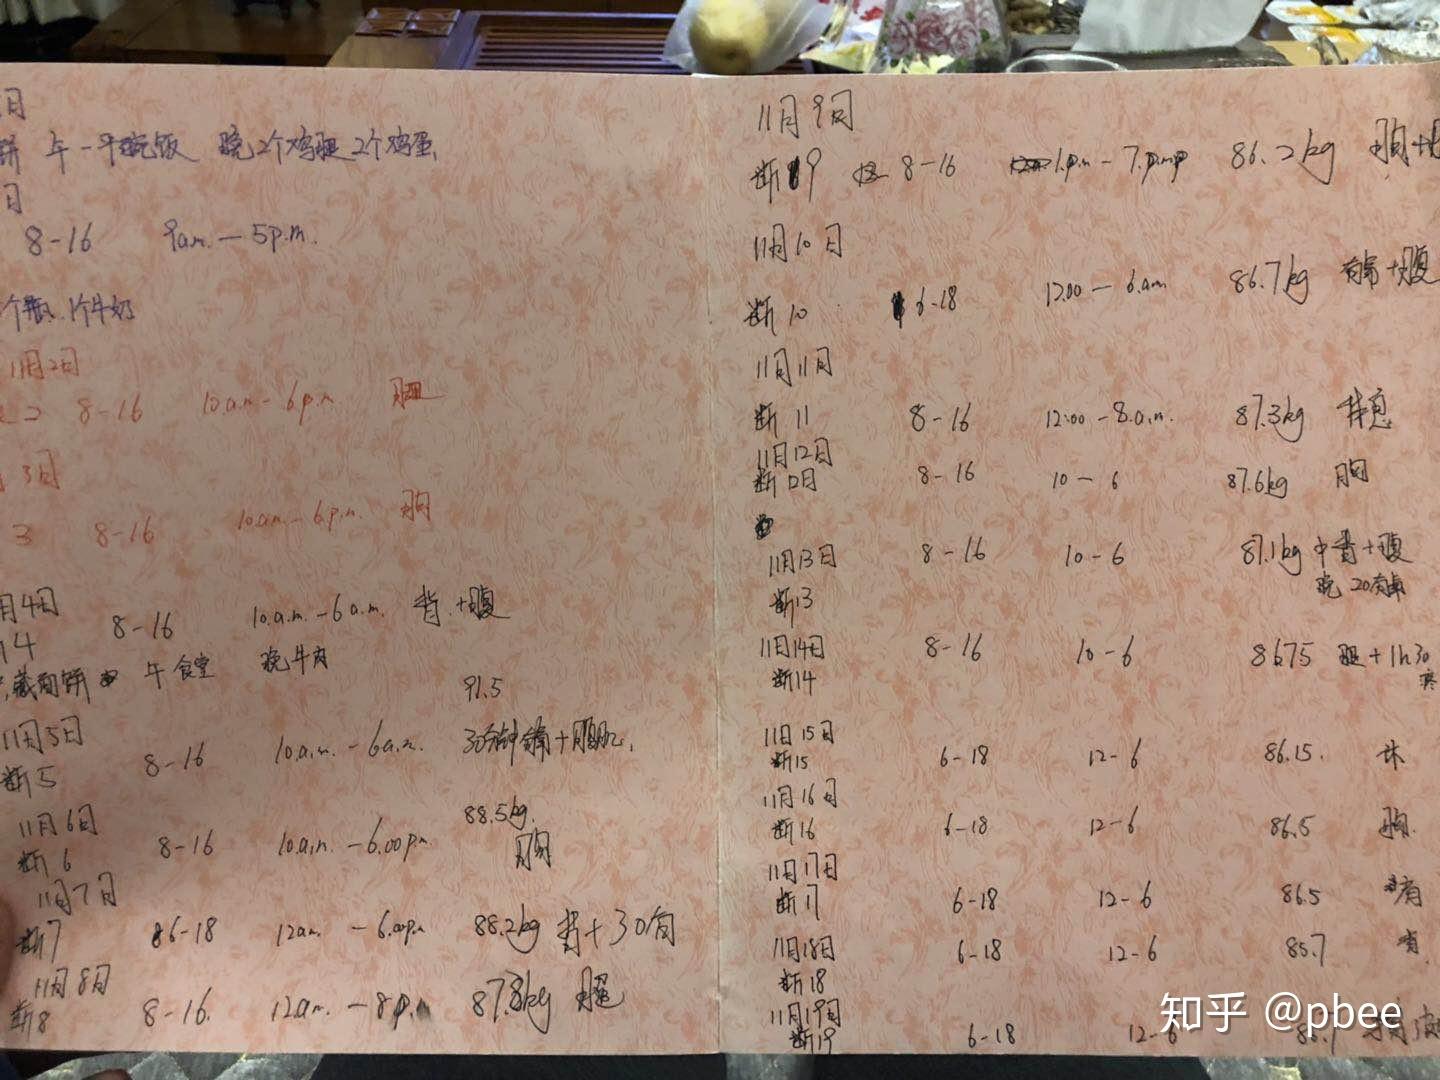 日
饼 午一半碗饭 晚2个鸡腿 2个鸡蛋
日
8-16 9a.m. — 5p.m.
个牛奶
11月2日
2 8-16 10a.m - 6p.m 腿
3日
3 8-16 10a.m. - 6.p.m. 胸
月4日
14 8-16 10.a.m. - 6a.m. 背.+腹
饼 午 食堂 晚牛肉
91.5
11月5日
断5 8-16 10.a.m. - 6a.m. 30分钟 +腹肌.
11月6日 88.5kg.
断6 8-16 10a.m. - 6.00p.m 胸
11月7日
断7 6-18 12am. - 6.00p.m 88.2kg 背+30
11月8日
断8 8-16. 12am. - 8p.m 87.8kg 腿
11月9日
断9 8-16 1.p.m - 7.p.m 86.2kg 胸+
11月10日
断10 6-18 12.00 — 6.am 86.7kg +腹
11月11日
断11 8-16 12:00 - 8.a.m. 87.3kg 休息
11月12日
断12日 8-16 10 — 6 87.6kg 胸
11月13日 8-16 10-6 87.1kg 中背+腹
断13 晚 20
11月14日 8-16 10-6 86.75 腿+1h30
断14
11月15日
断15 6-18 12-6 86.15. 休
11月16日
断16 6-18 12-6 86.5 胸.
11月17日
断17 6-18 12-6 86.5
11月18日 6-18 12-6 85.7
断18
11月19日
断19 6-18 12-6
知乎 @pbee